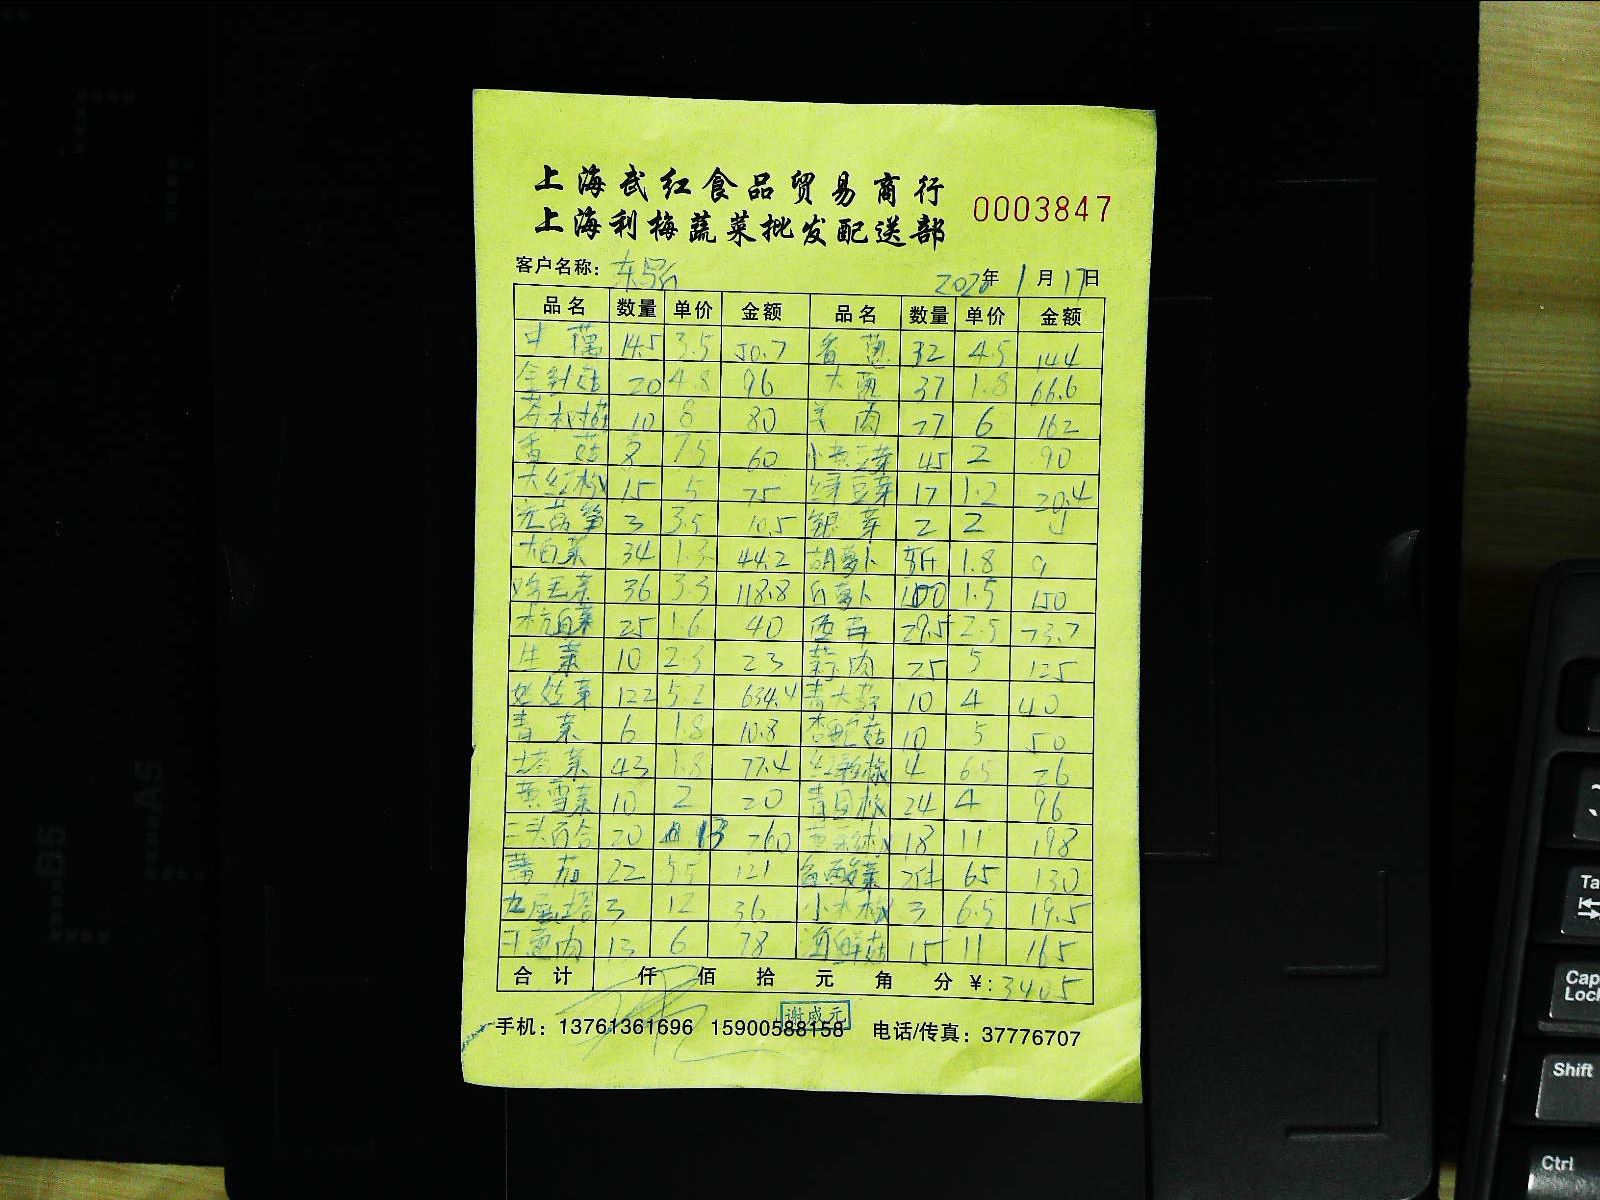 上海武红食品贸易商行
上海利梅蔬菜批发配送部
0003847
客户名称：
202 年 1 月 17 日
品名 数量 单价 金额 品名 数量 单价 金额
14.5 3.5 50.7 香葱 32 4.5 144
金针菇 20 4.8 96 大葱 37 1.8 66.6
茶树菇 10 8 80 肉 27 6 162
香菇 8 7.5 60 小黄豆芽 45 2 90
大红椒 15 5 75 绿豆芽 17 1.2 20.4
莴笋 3 3.5 10.5 银芽 2 2 4
大白菜 34 1.3 44.2 胡萝卜 5斤 1.8 9
毛菜 36 3.3 118.8 白萝卜 100 1.5 150
杭白菜 25 1.6 40 西芹 29.5 2.5 73.7
生菜 10 2.3 23 蒜肉 25 5 125
娃娃菜 122 5.2 634.4 青大蒜 10 4 40
青菜 6 1.8 10.8 杏鲍菇 10 5 50
塔菜 43 1.8 77.4 红彩椒 4 6.5 26
黄雪菜 10 2 20 青圆椒 24 4 96
二头百合 20 13 260 黄彩椒 18 11 198
蕃茄 22 5.5 121 酸菜 65 130
九层塔 3 12 36 小木椒 3 6.5 19.5
干葱肉 13 6 78 海鲜菇 15 11 165
合计 仟 佰 拾 元 角 分 ¥: 3405
谢成元
手机：13761361696 15900588158 电话/传真：37776707
B5
A5
Ta
Cap
Lock
Shift
Ctrl